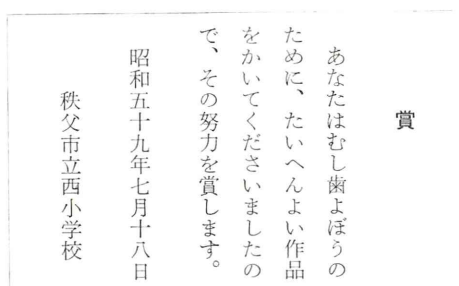 賞
あなたはむし歯よぼうの
ために、たいへんよい作品
をかいてくださいましたの
で、その努力を賞します。
昭和五十九年七月十八日
秩父市立西小学校